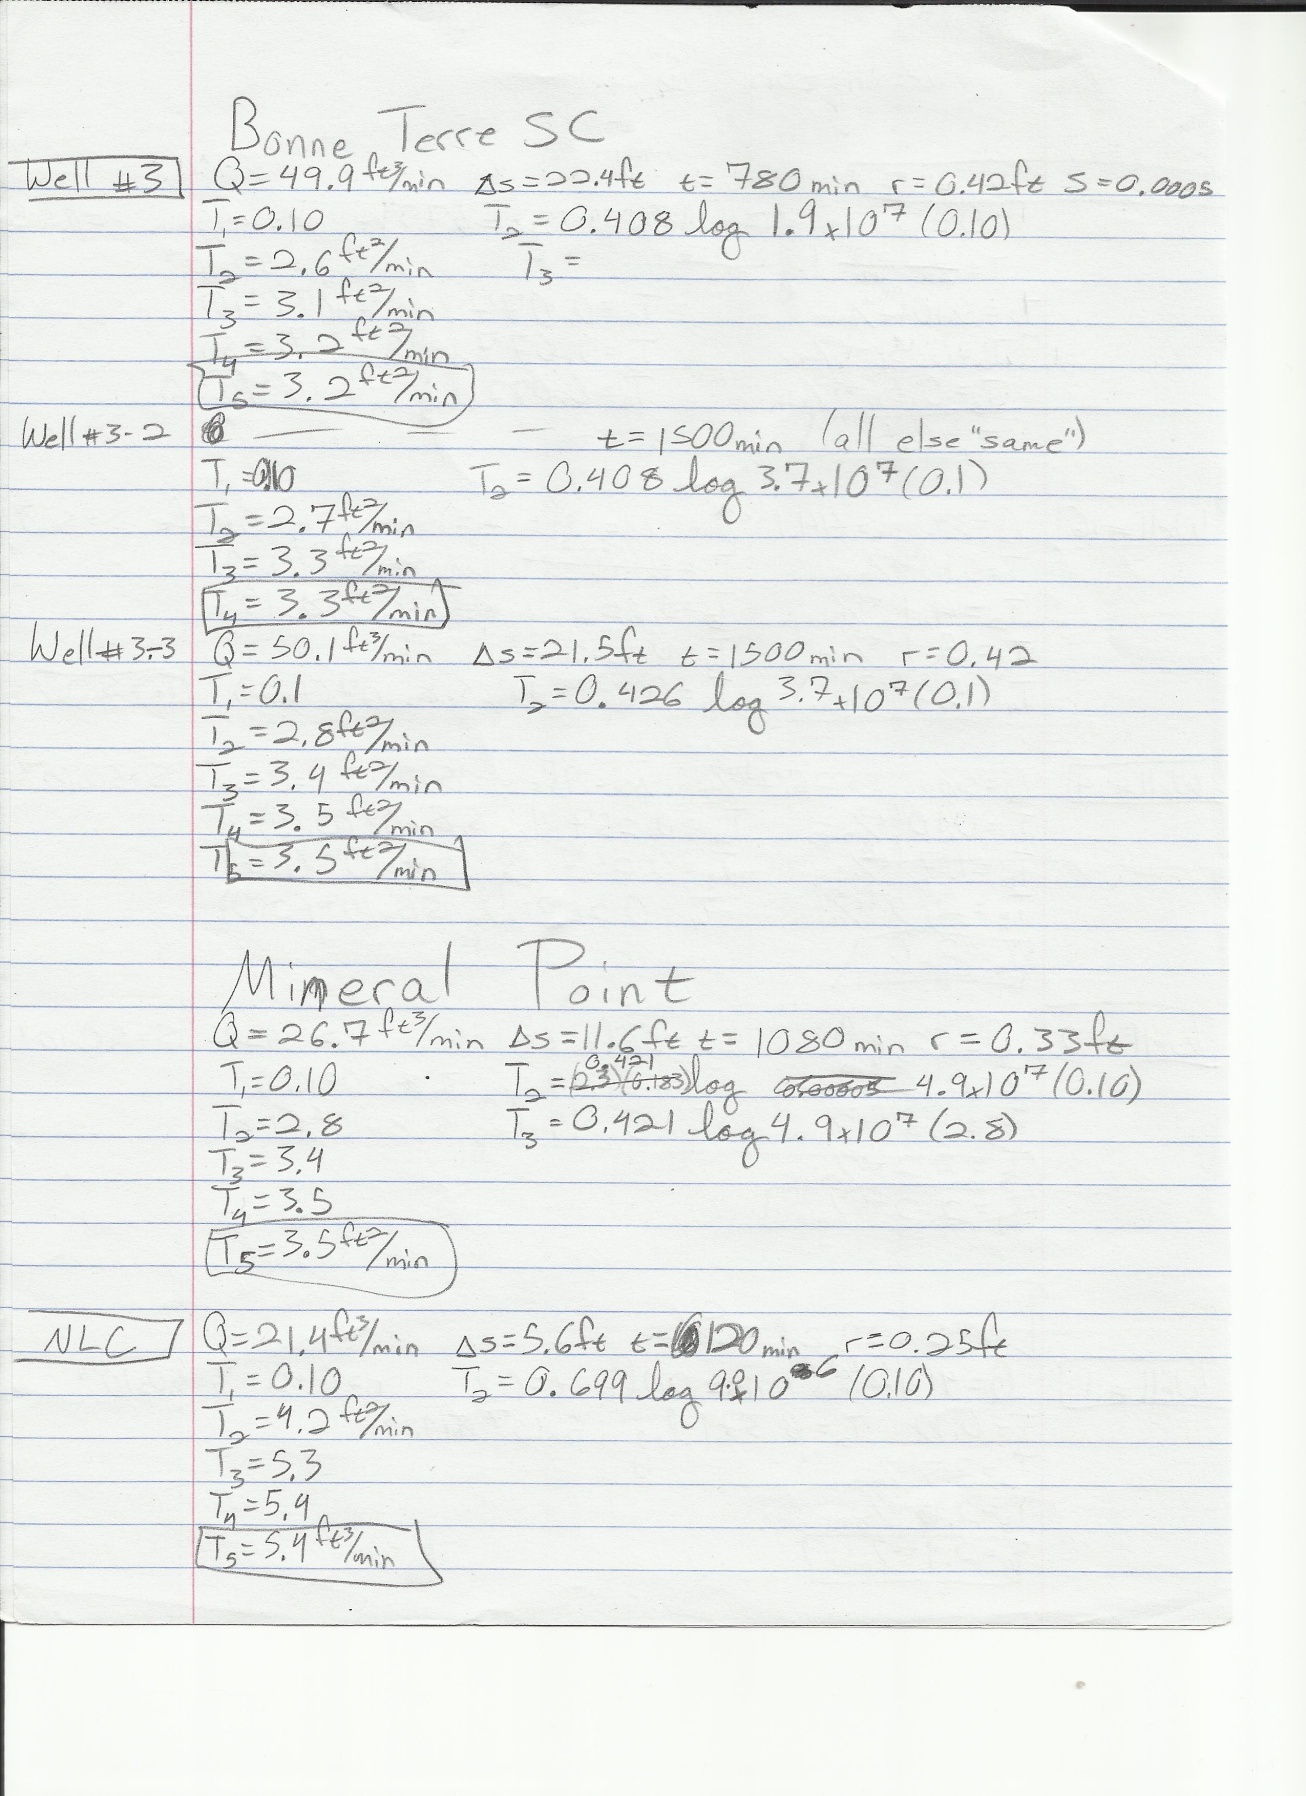 Bonne Terre SC
Well #3 Q=49.9 ft³/min Δs=22.4ft t=780min r=0.42ft S=0.0005
T₁=0.10 T₂=0.408 log 1.9x10⁷ (0.10)
T₂=2.6 ft²/min T₃=
T₃=3.1 ft²/min
T₄=3.2 ft²/min
T₅=3.2 ft²/min
Well #3-2 — — — t=1500min (all else "same")
T₁=0.10 T₂=0.408 log 3.7x10⁷(0.1)
T₂=2.7 ft²/min
T₃=3.3 ft²/min
T₄=3.3 ft²/min
Well #3-3 Q=50.1 ft³/min Δs=21.5ft t=1500min r=0.42
T₁=0.1 T₂=0.426 log 3.7x10⁷(0.1)
T₂=2.8 ft²/min
T₃=3.4 ft²/min
T₄=3.5 ft²/min
T₅=3.5 ft²/min
Mineral Point
Q=26.7 ft³/min Δs=11.6ft t=1080min r=0.33ft
0.421
T₁=0.10 T₂=(2.3)(0.183)log 4.9x10⁷(0.10)
T₂=2.8 T₃=0.421 log 4.9x10⁷(2.8)
T₃=3.4
T₄=3.5
T₅=3.5 ft²/min
NLC Q=21.4 ft³/min Δs=5.6ft t=120min r=0.25ft
T₁=0.10 T₂=0.699 log x10⁶ (0.10)
T₂=4.2 ft²/min
T₃=5.3
T₄=5.4
T₅=5.4 ft³/min